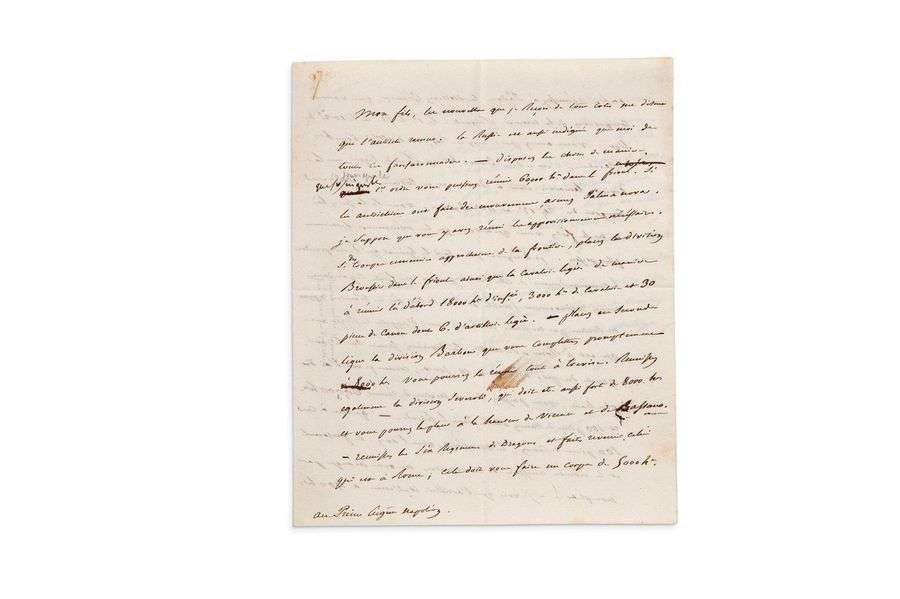 Mon fils, les nouvelles que je reçois de tous cotés me disent
que l'autriche remue. la Russie est aussi indignée que moi de
toutes ces fanfaronnades. — disposez les choses de manière
que
ordre vous puissiez réunir 60000 h. dans le frioul. Si
les autrichiens ont fait des mouvemens, armez Palmanova.
je suppose que vous y avez réuni les approvisionnemens nécessaires.
Si des troupes ennemies approchaient de la frontière, placez la division
Broussier dans le frioul ainsi que la cavalerie légère de manière
à réunir là d'abord 18000 h. d'infrie, 3000 h. de cavalerie et 30
pieces de canon dont 6. d'artillerie légère. — placez en seconde
ligne la division Barbou que vous completerez promptement
à 8000 h. vous pourrez la tout à trévise. Réunissez
également la division Severoli, qui doit etre aussi forte de 8000 h.
et vous pourrez la placer à la hauteur de Vicence et de Bassano.
— réunissez les Six Régimens de Dragons et faites revenir celui
qui est à Rome; cela doit vous faire un corps de 5000 h.
au Prince Eugène Napoléon.